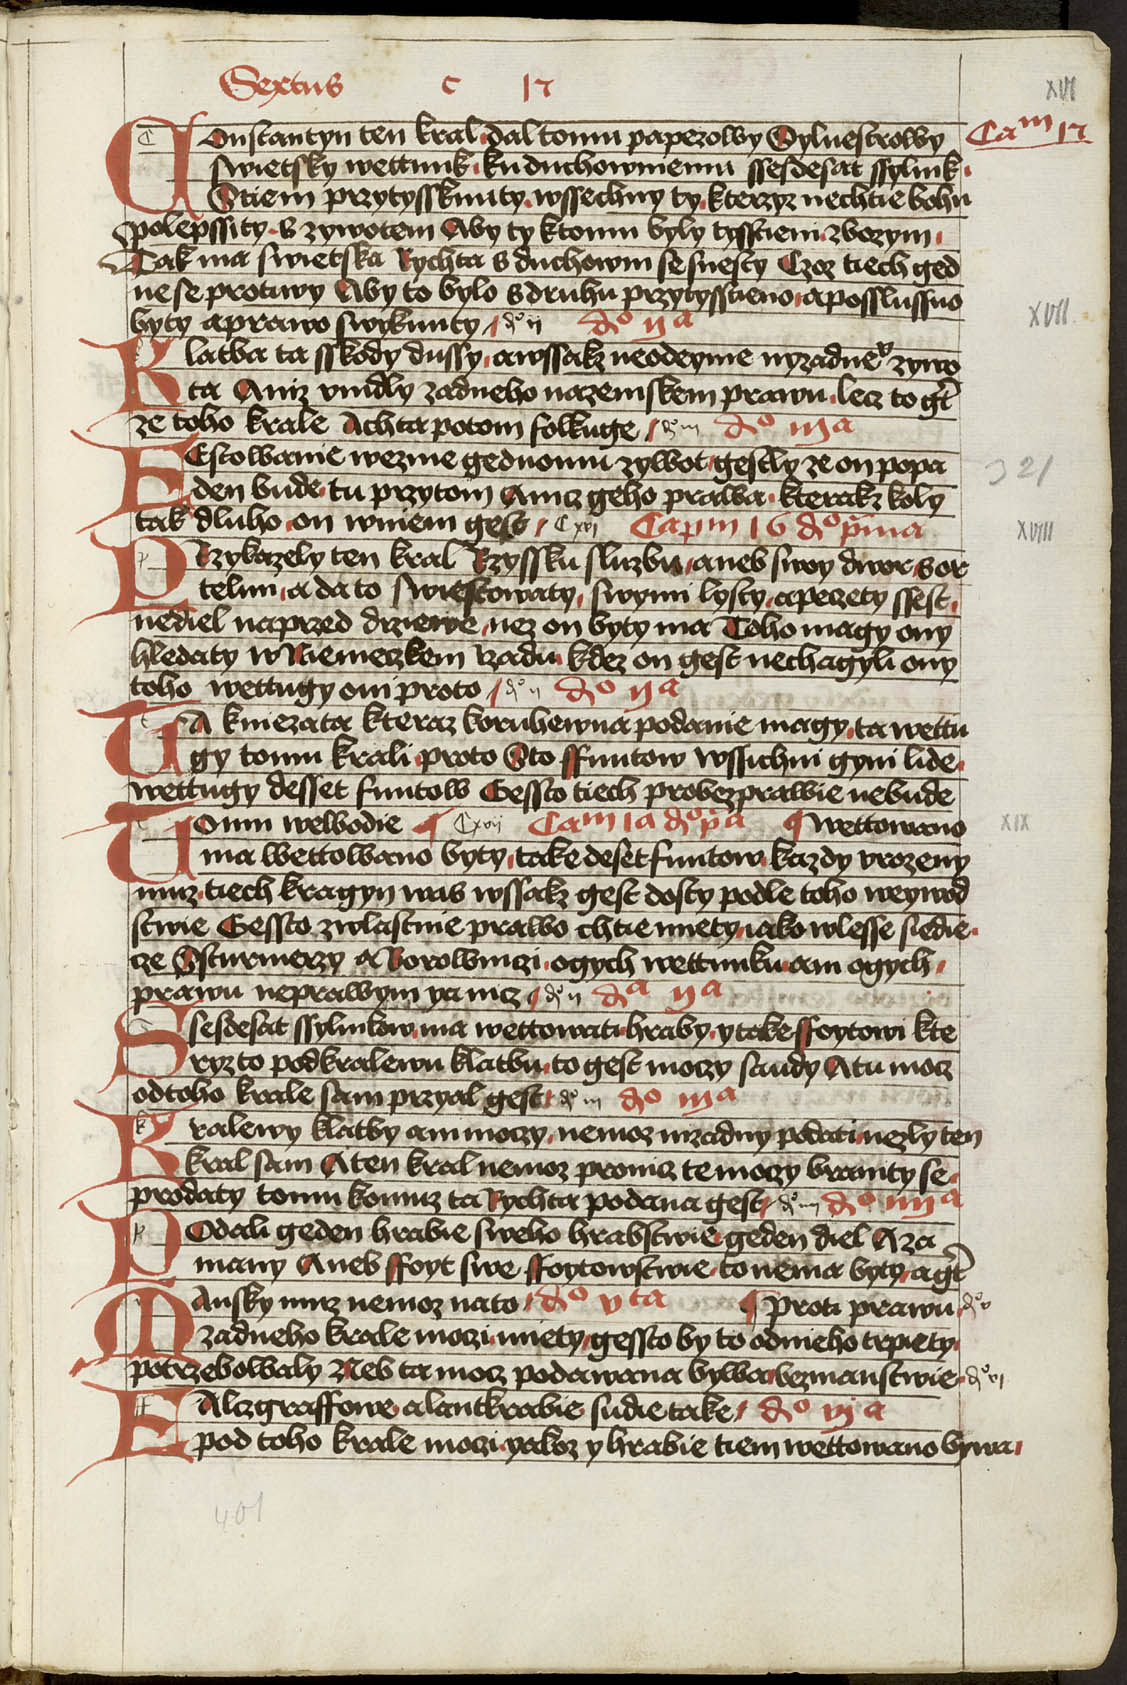 Sextus c 17
XVI
Constantyn ten kral dal tomu papezowy Sylvestrowy Cam 17
swietsky wettunk ku duchowniemu ssesdesat ssylink
Stiem przytyssknuty wssechny ty kterzyz nechtie bohu
polepssity s zywotem Aby ty ktomu byly tysstieni zbozym
Tak ma swietska Rychta s duchowni se snesty Czoz tiech ged
ne se protiwy Aby to bylo s druhu przytysstieno a posslussno
byty a prawo swyknuty do ii do iia
XVII
Klatba ta sskody dussy awssakz neodeyme nyzadneo zywo
ta Aniz vmdly zadneho nazemskem prawu lecz to gt
ze toho krale Achta potom folkuge do iii do iiia
Festowanie wezme gednomu zywot gestly ze on popa
321
den bude tu przytom Anicz geho prawa kterakz koly
tak dluho on wniem gest C xvi Capm 16 do pma
XVIII
Przykazely ten kral Rzyssku sluzbu aneb swoy dwor s or
telem a da to swiestowaty swymi lysty apeczety ssest
nediel naprzed drziewe nez on byty ma Toho magy ony
hledaty w Niemeczkem rzadu kdez on gest nechagyli ony
toho wettugy oni proto do ii do iia
Ta kniezata kteraz koruhewna podanie magy ta wettu
gy tomu krali proto Sto ffuntow wssichni gyni lide
wettugy desset funtow Gessto tiech probezprawie nebude
Tomu welbodie C xvii Cam 1a do pa wettowano
XIX
ma wettowano byty take deset funtow kazdy vrozeny
muz tiech kragyn was wssakz gest dosty podle toho weywod
stwie Gessto zwlastnie prawo chtie miety iako wlesse siedie
cze Sturmerzy a Borowniczi ogych wettunku ani ogych
prawu neprawym ya nicz do ii da iia
Ssesdesat ssylinkow ma wettowati hraby y take ffoytowi kte
ryz to pod kralewu klatbu to gest moczy saudy A tu mocz
odtoho krale sam przyal gest do iii do iiia
Kralewy klatby ani moczy nemoz nizadny podati nezly ten
kral sam A ten kral nemoz pronicz te moczy branity se
prodaty tomu komuz ta Rychta podana gest do iiii do iiiia
Podali geden hrabie sweho hrabstwie geden diel A za
many Aneb ffoyt swe ffoytowstwie to nema byty agt
Mansky muz nemoz nato do vta proti prawu do v
zadneho krale moczi miety gessto by to odnieho trpiety
potrzebowaly Neb ta mocz podawana bywa bezmanstwie do vi
Falczgraffowe a lantkrabie sudie take do via
pod toho krale moczi yakoz y hrabie tiem wettowano bywa
401